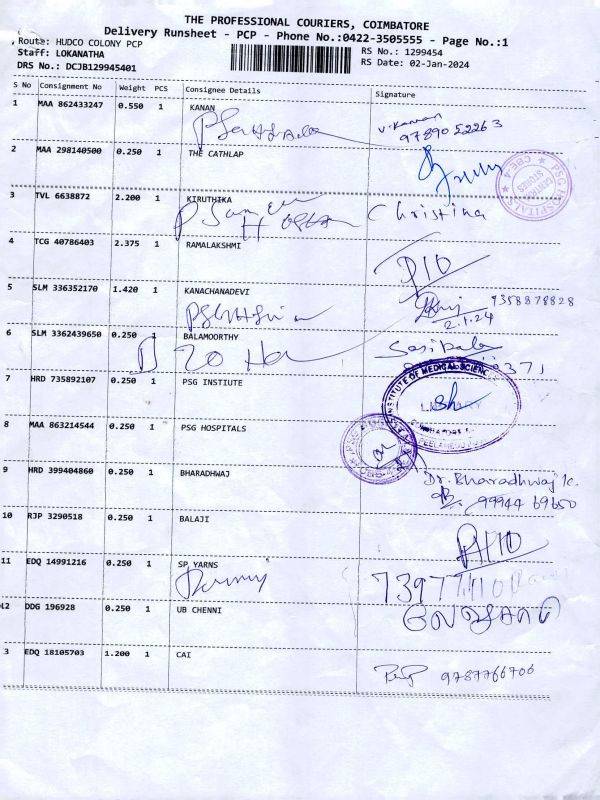 THE PROFESSIONAL COURIERS, COIMBATORE
Delivery Runsheet - PCP - Phone No.:0422-3505555 - Page No.:1
Route: HUDCO COLONY PCP
Staff: LOKANATHA
DRS No.: DCJB129945401
RS No.: 1299454
RS Date: 02-Jan-2024
S No Consignment No Weight PCS Consignee Details Signature
1 MAA 862433247 0.550 1 KANAN
V. Kannan
9789052263
2 MAA 298140500 0.250 1 THE CATHLAP
3 TVL 6638872 2.200 1 KIRUTHIKA
Christina
4 TCG 40786403 2.375 1 RAMALAKSHMI
5 SLM 336352170 1.420 1 KANACHANADEVI
9358878828
2.1.24
6 SLM 3362439650 0.250 1 BALAMOORTHY
Sasikala
7 HRD 735892107 0.250 1 PSG INSTIUTE
INSTITUTE OF MEDICAL SCIENCES
LIBRARY
8 MAA 863214544 0.250 1 PSG HOSPITALS
9 HRD 399404860 0.250 1 BHARADHWAJ
Dr. Bharadhwaj K.
99944 69650
10 RJP 3290518 0.250 1 BALAJI
11 EDQ 14991216 0.250 1 SP YARNS
12 DDG 196928 0.250 1 UB CHENNI
3 EDQ 18105703 1.200 1 CAI
9787766706